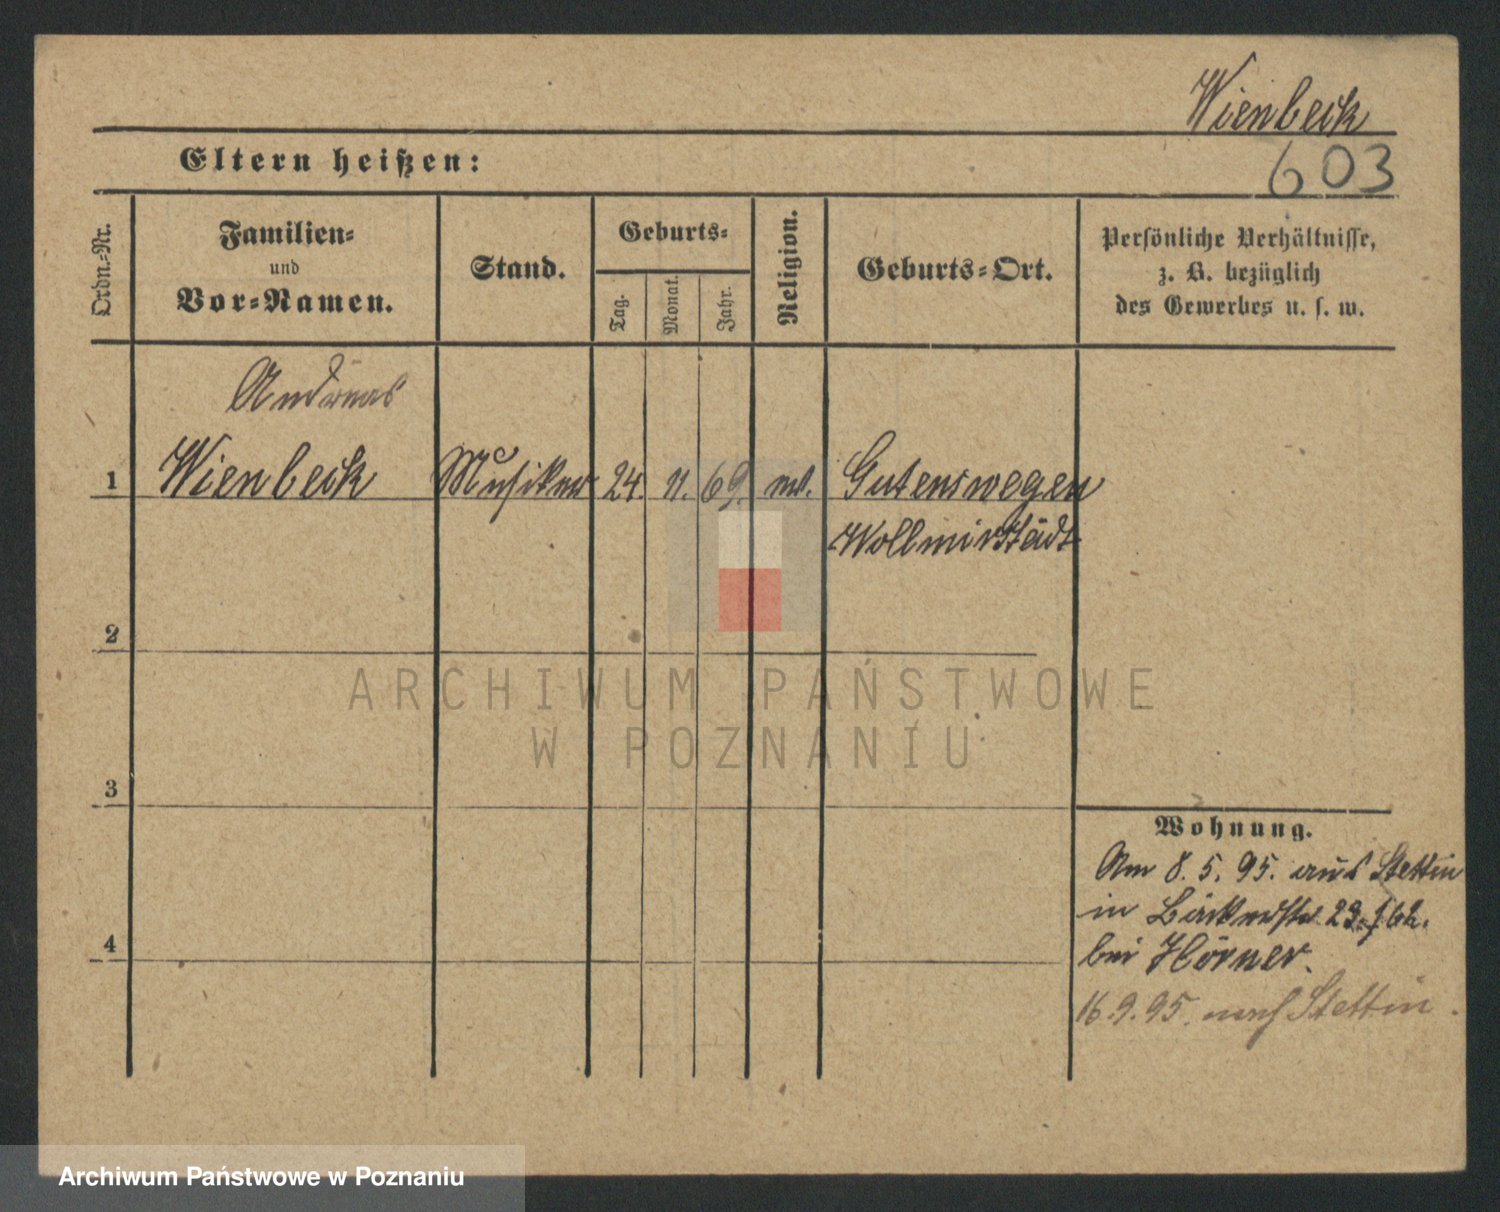 Wienbeck
603
Eltern heißen:
Ordn.-Nr.
Familien-
und
Vor-Namen.
Stand.
Geburts-
Tag.
Monat.
Jahr.
Religion.
Geburts-Ort.
Persönliche Verhältnisse,
z. B. bezüglich
des Gewerbes u. s. w.
Andreas
1 Wienbeck Musiker 24. 11. 69. ev. Gutenswegen
Wollmirstädt
2
3
4
Wohnung.
Am 8. 5. 95. aus Stettin
in Bäckerstr. 23
bei Hörner.
16. 9. 95. nach Stettin.
ARCHIWUM PAŃSTWOWE
W POZNANIU
Archiwum Państwowe w Poznaniu